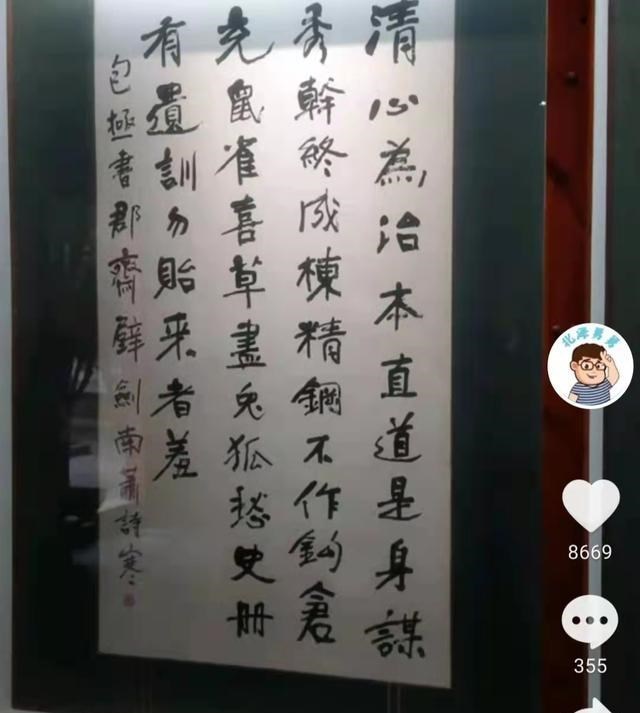 清心為治本直道是身謀
秀幹終成棟精鋼不作鉤倉
充鼠雀喜草盡兔狐愁史冊
有遺訓勿貽來者羞
包拯書郡齋壁劍南蕭詩寒
8669
355